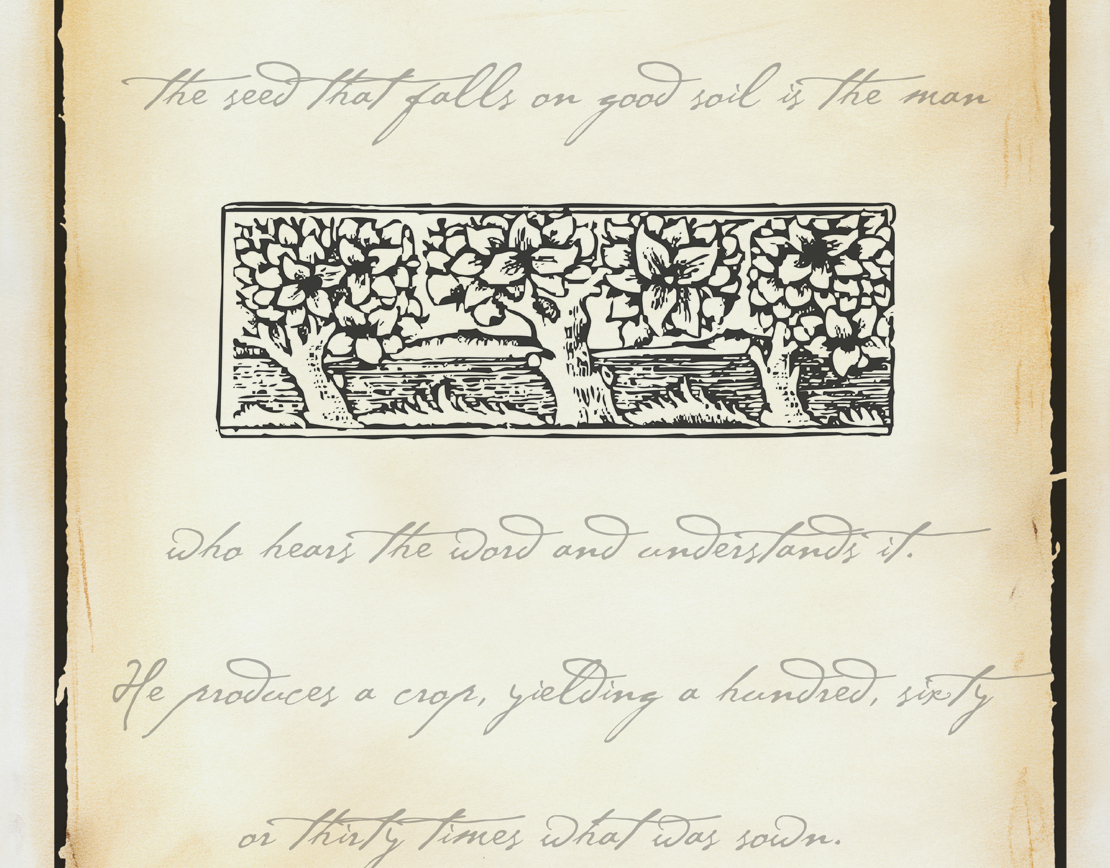 the seed that falls on good soil is the man
who hears the word and understands it.
He produces a crop, yielding a hundred, sixty
or thirty times what was sown.